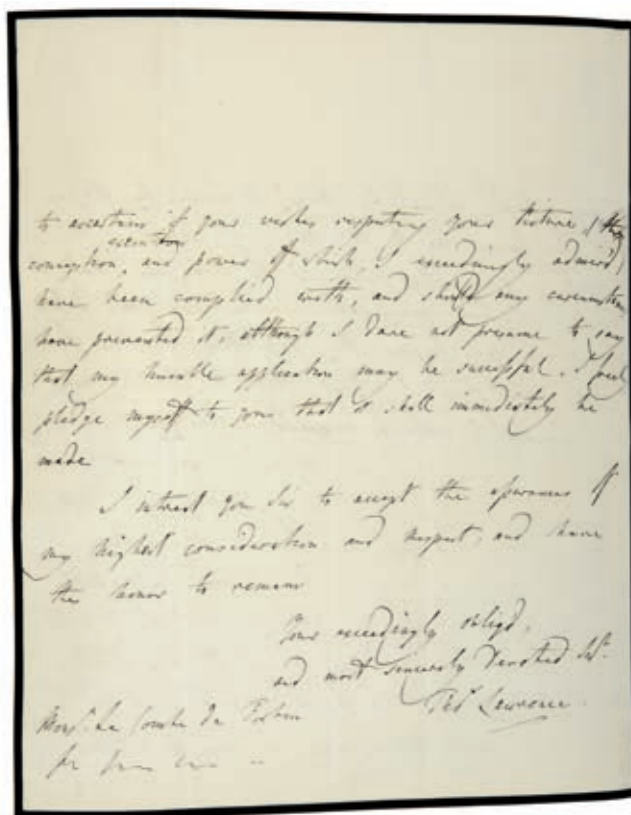 to ascertain if your wishes respecting your Picture, (the
execution
conception, and power of which, I exceedingly admired)
have been complied with, and should any circumstances
have prevented it, although I dare not presume to say
that my humble application may be successful, I
pledge myself to you that it shall immediately be
made
I intreat you Sir to accept the assurances of
my highest consideration and respect, and have
the honor to remain
Your exceedingly obligd,
and most sincerely devoted Sert.
Thos Lawrence
Monsr. Le Comte de Forbin